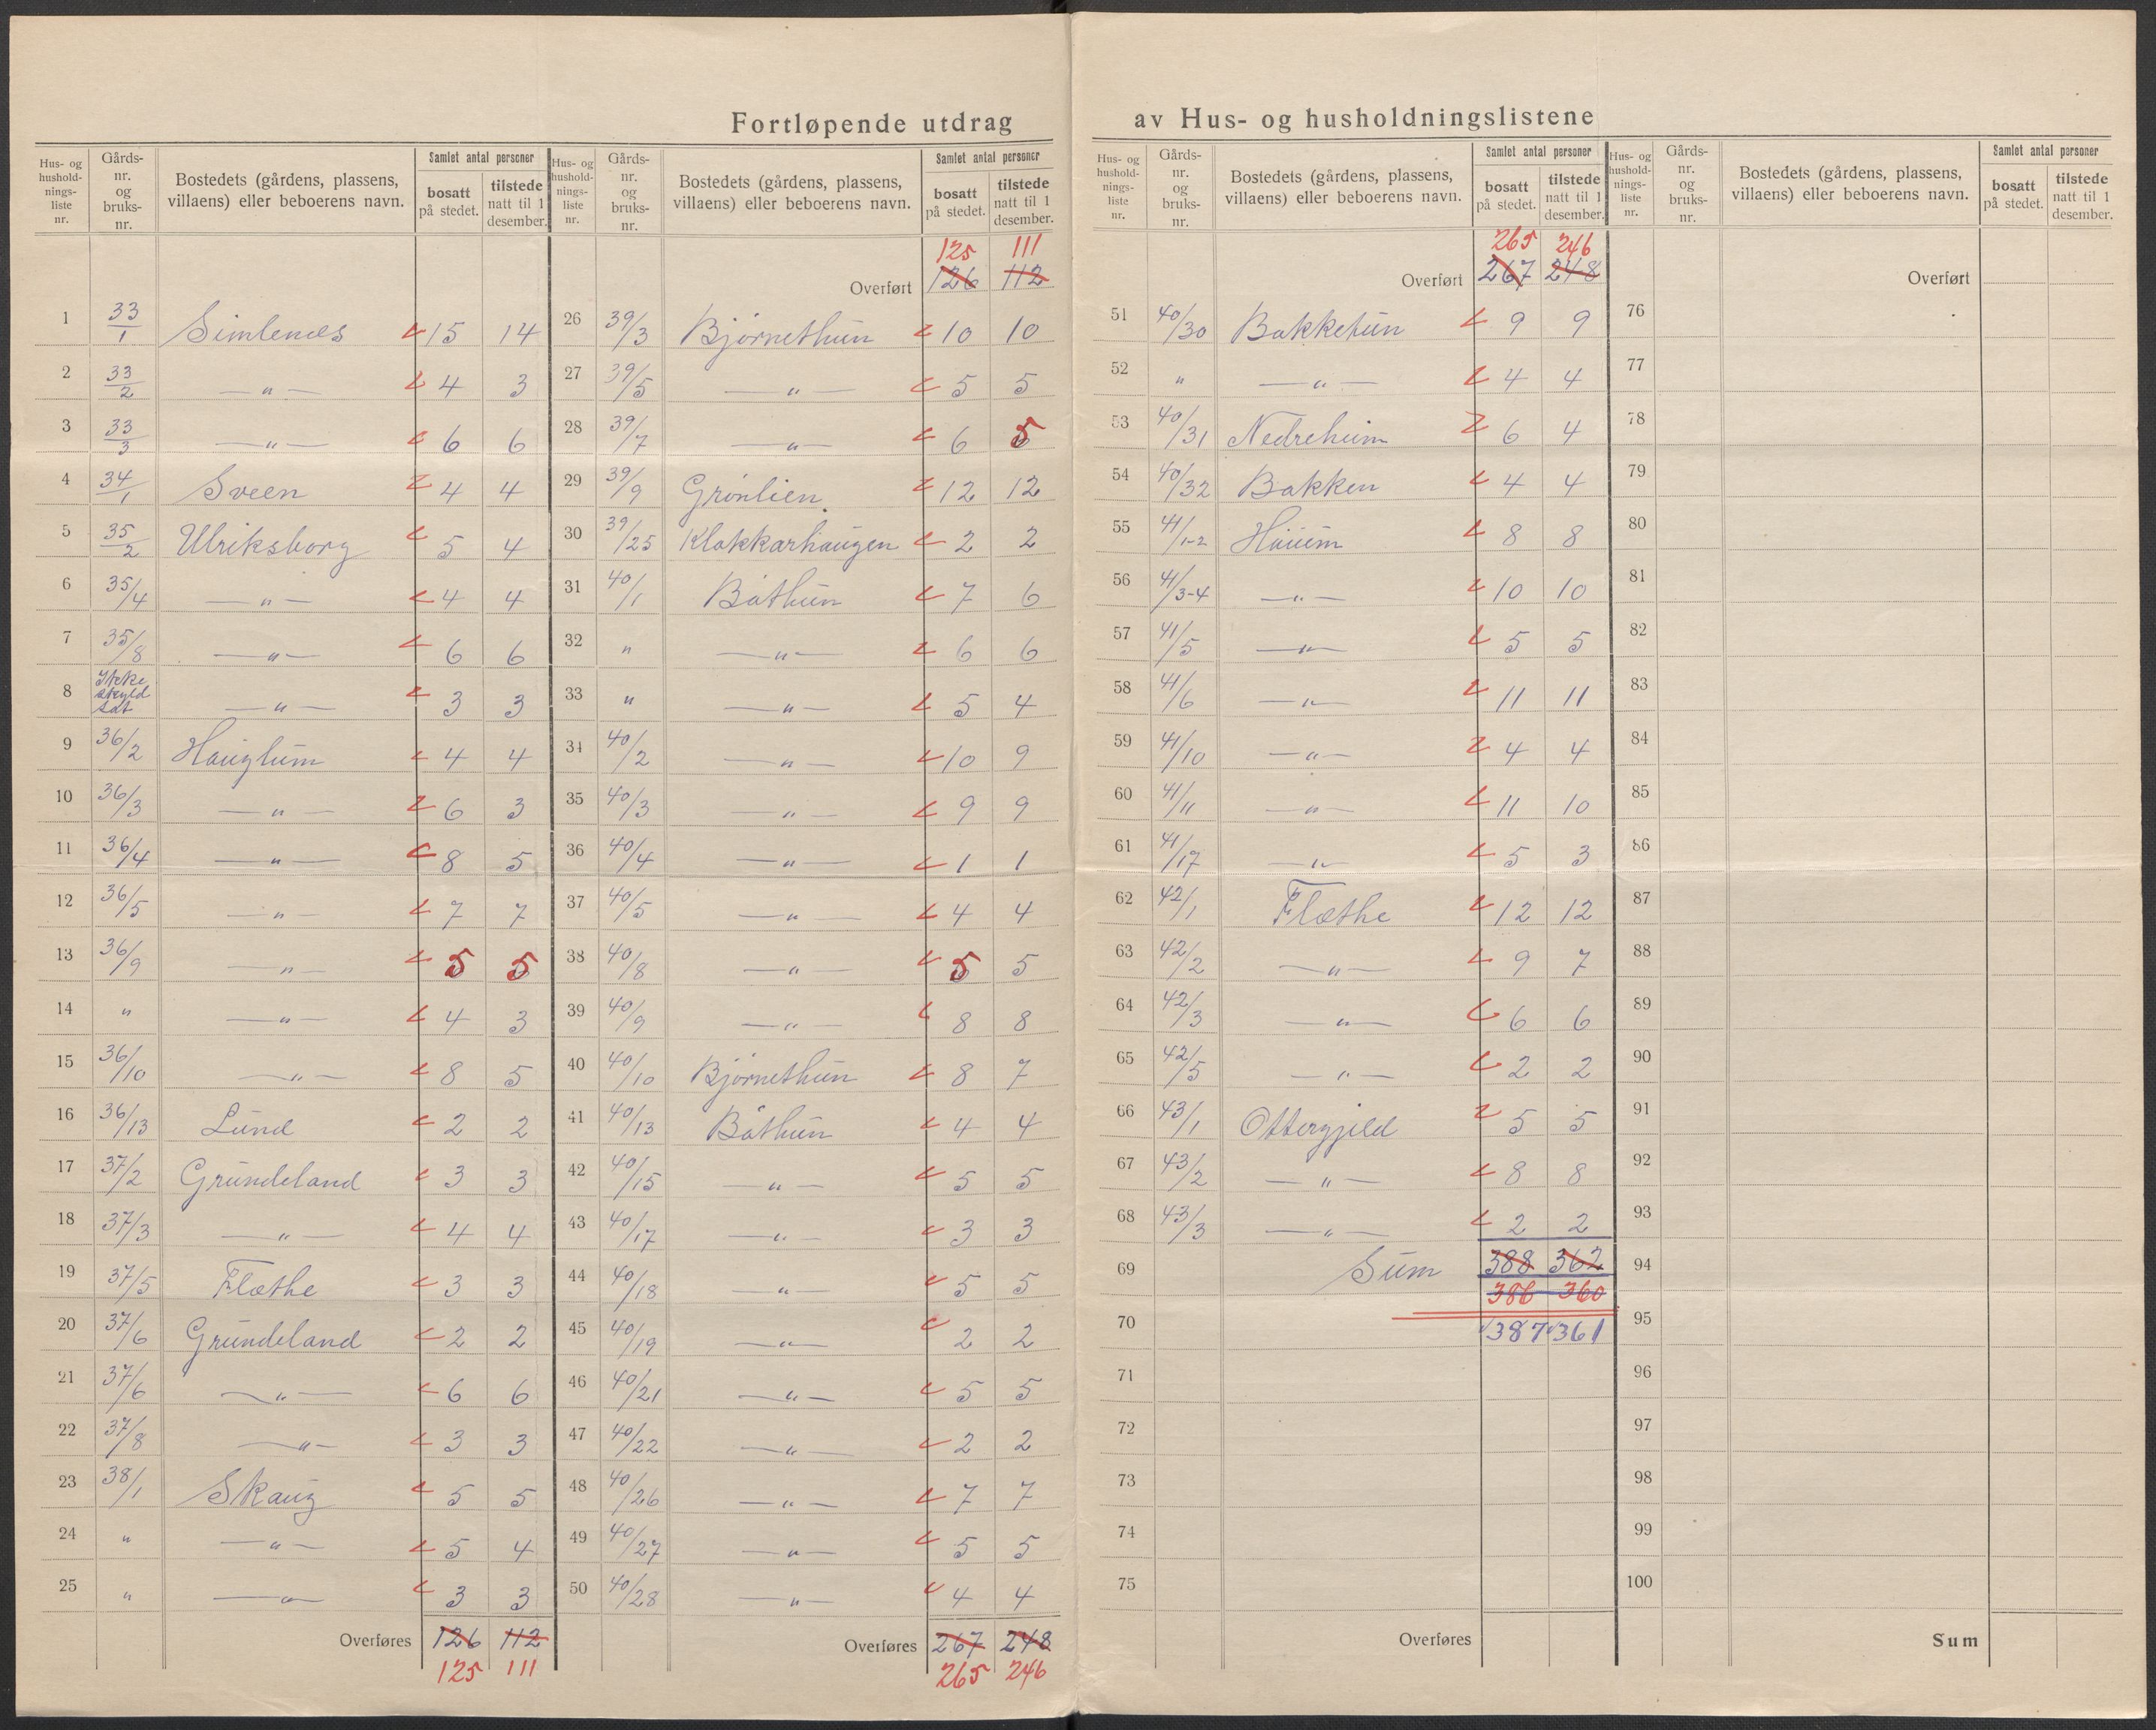 Fortløpende utdrag av Hus- og husholdningslistene
Hus- og hushold-nings-liste nr. | Gårds-nr. og bruks-nr. | Bostedets (gårdens, plassens, villaens) eller beboerens navn. | Samlet antal personer | bosatt på stedet. | tilstede natt til 1 desember.
1 33/1 Simlenæs 15 14
2 33/2 —„— 4 3
3 33/3 —„— 6 6
4 34/1 Sveen 4 4
5 35/2 Ulriksborg 5 4
6 35/4 —„— 4 4
7 35/8 —„— 6 6
8 Ikke skyld sat —„— 3 3
9 36/2 Hauglum 4 4
10 36/3 —„— 6 3
11 36/4 —„— 8 5
12 36/5 —„— 7 7
13 36/9 —„— 5 5
14 „ —„— 4 3
15 36/10 —„— 8 5
16 36/13 Lund 2 2
17 37/2 Grundeland 3 3
18 37/3 —„— 4 4
19 37/5 Flæthe 3 3
20 37/6 Grundeland 2 2
21 37/6 —„— 6 6
22 37/8 —„— 3 3
23 38/1 Skaug 5 5
24 „ —„— 5 4
25 „ —„— 3 3
Overføres 126 112
125 111
Hus- og hushold-nings-liste nr. | Gårds-nr. og bruks-nr. | Bostedets (gårdens, plassens, villaens) eller beboerens navn. | Samlet antal personer | bosatt på stedet. | tilstede natt til 1 desember.
125 111
Overført 126 112
26 39/3 Bjørnethun 10 10
27 39/5 —„— 5 5
28 39/7 —„— 6 5
29 39/9 Grønlien 12 12
30 39/25 Klokkarhaugen 2 2
31 40/1 Båthun 7 6
32 „ —„— 6 6
33 „ —„— 5 4
34 40/2 —„— 10 9
35 40/3 —„— 9 9
36 40/4 —„— 1 1
37 40/5 —„— 4 4
38 40/8 —„— 5 5
39 40/9 —„— 8 8
40 40/10 Bjørnethun 8 7
41 40/13 Båthun 4 4
42 40/15 —„— 5 5
43 40/17 —„— 3 3
44 40/18 —„— 5 5
45 40/19 —„— 2 2
46 40/21 —„— 5 5
47 40/22 —„— 2 2
48 40/26 —„— 7 7
49 40/27 —„— 5 5
50 40/28 —„— 4 4
Overføres 267 248
265 246
Hus- og hushold-nings-liste nr. | Gårds-nr. og bruks-nr. | Bostedets (gårdens, plassens, villaens) eller beboerens navn. | Samlet antal personer | bosatt på stedet. | tilstede natt til 1 desember.
265 246
Overført 267 248
51 40/30 Bakketun 9 9
52 „ —„— 4 4
53 40/31 Nedreheim 6 4
54 40/32 Bakken 4 4
55 41/1-2 Hauum 8 8
56 41/3-4 —„— 10 10
57 41/5 —„— 5 5
58 41/6 —„— 11 11
59 41/10 —„— 4 4
60 41/11 —„— 11 10
61 41/17 —„— 5 3
62 42/1 Flæthe 12 12
63 42/2 —„— 9 7
64 42/3 —„— 6 6
65 42/5 —„— 2 2
66 43/1 Ottergjeld 5 5
67 43/2 —„— 8 8
68 43/3 —„— 2 2
69 Sum 388 362
386 360
70 387 361
71
72
73
74
75
Overføres
Hus- og hushold-nings-liste nr. | Gårds-nr. og bruks-nr. | Bostedets (gårdens, plassens, villaens) eller beboerens navn. | Samlet antal personer | bosatt på stedet. | tilstede natt til 1 desember.
Overført
76
77
78
79
80
81
82
83
84
85
86
87
88
89
90
91
92
93
94
95
96
97
98
99
100
Sum